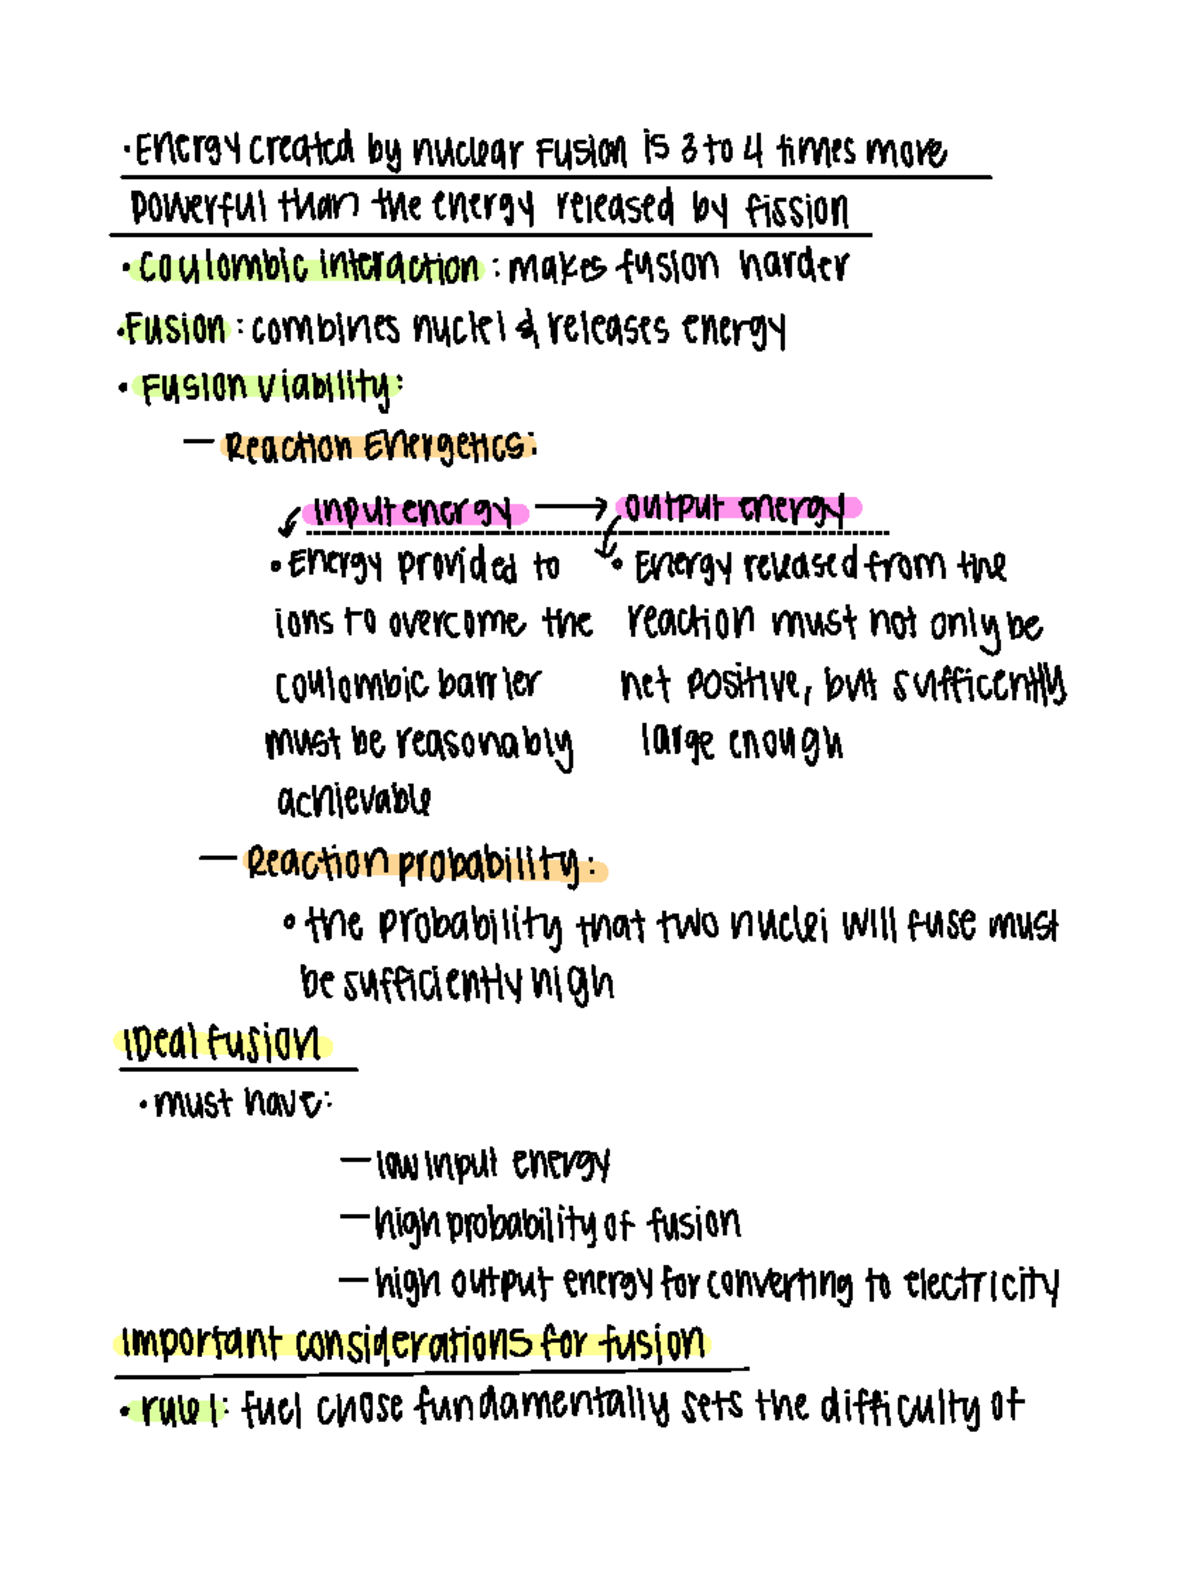 • Energy created by nuclear fusion is 3 to 4 times more
powerful than the energy released by fission
• Coulombic interaction : makes fusion harder
• Fusion : combines nuclei & releases energy
• Fusion viability:
— Reaction Energetics:
input energy → output energy
• Energy provided to
ions to overcome the
coulombic barrier
must be reasonably
achievable
• Energy released from the
reaction must not only be
net positive, but sufficently
large enough
— Reaction probability:
• the probability that two nuclei will fuse must
be sufficiently high
Ideal fusion
• must have:
— low input energy
— high probability of fusion
— high output energy for converting to electricity
Important considerations for fusion
• rule 1: fuel chose fundamentally sets the difficulty of